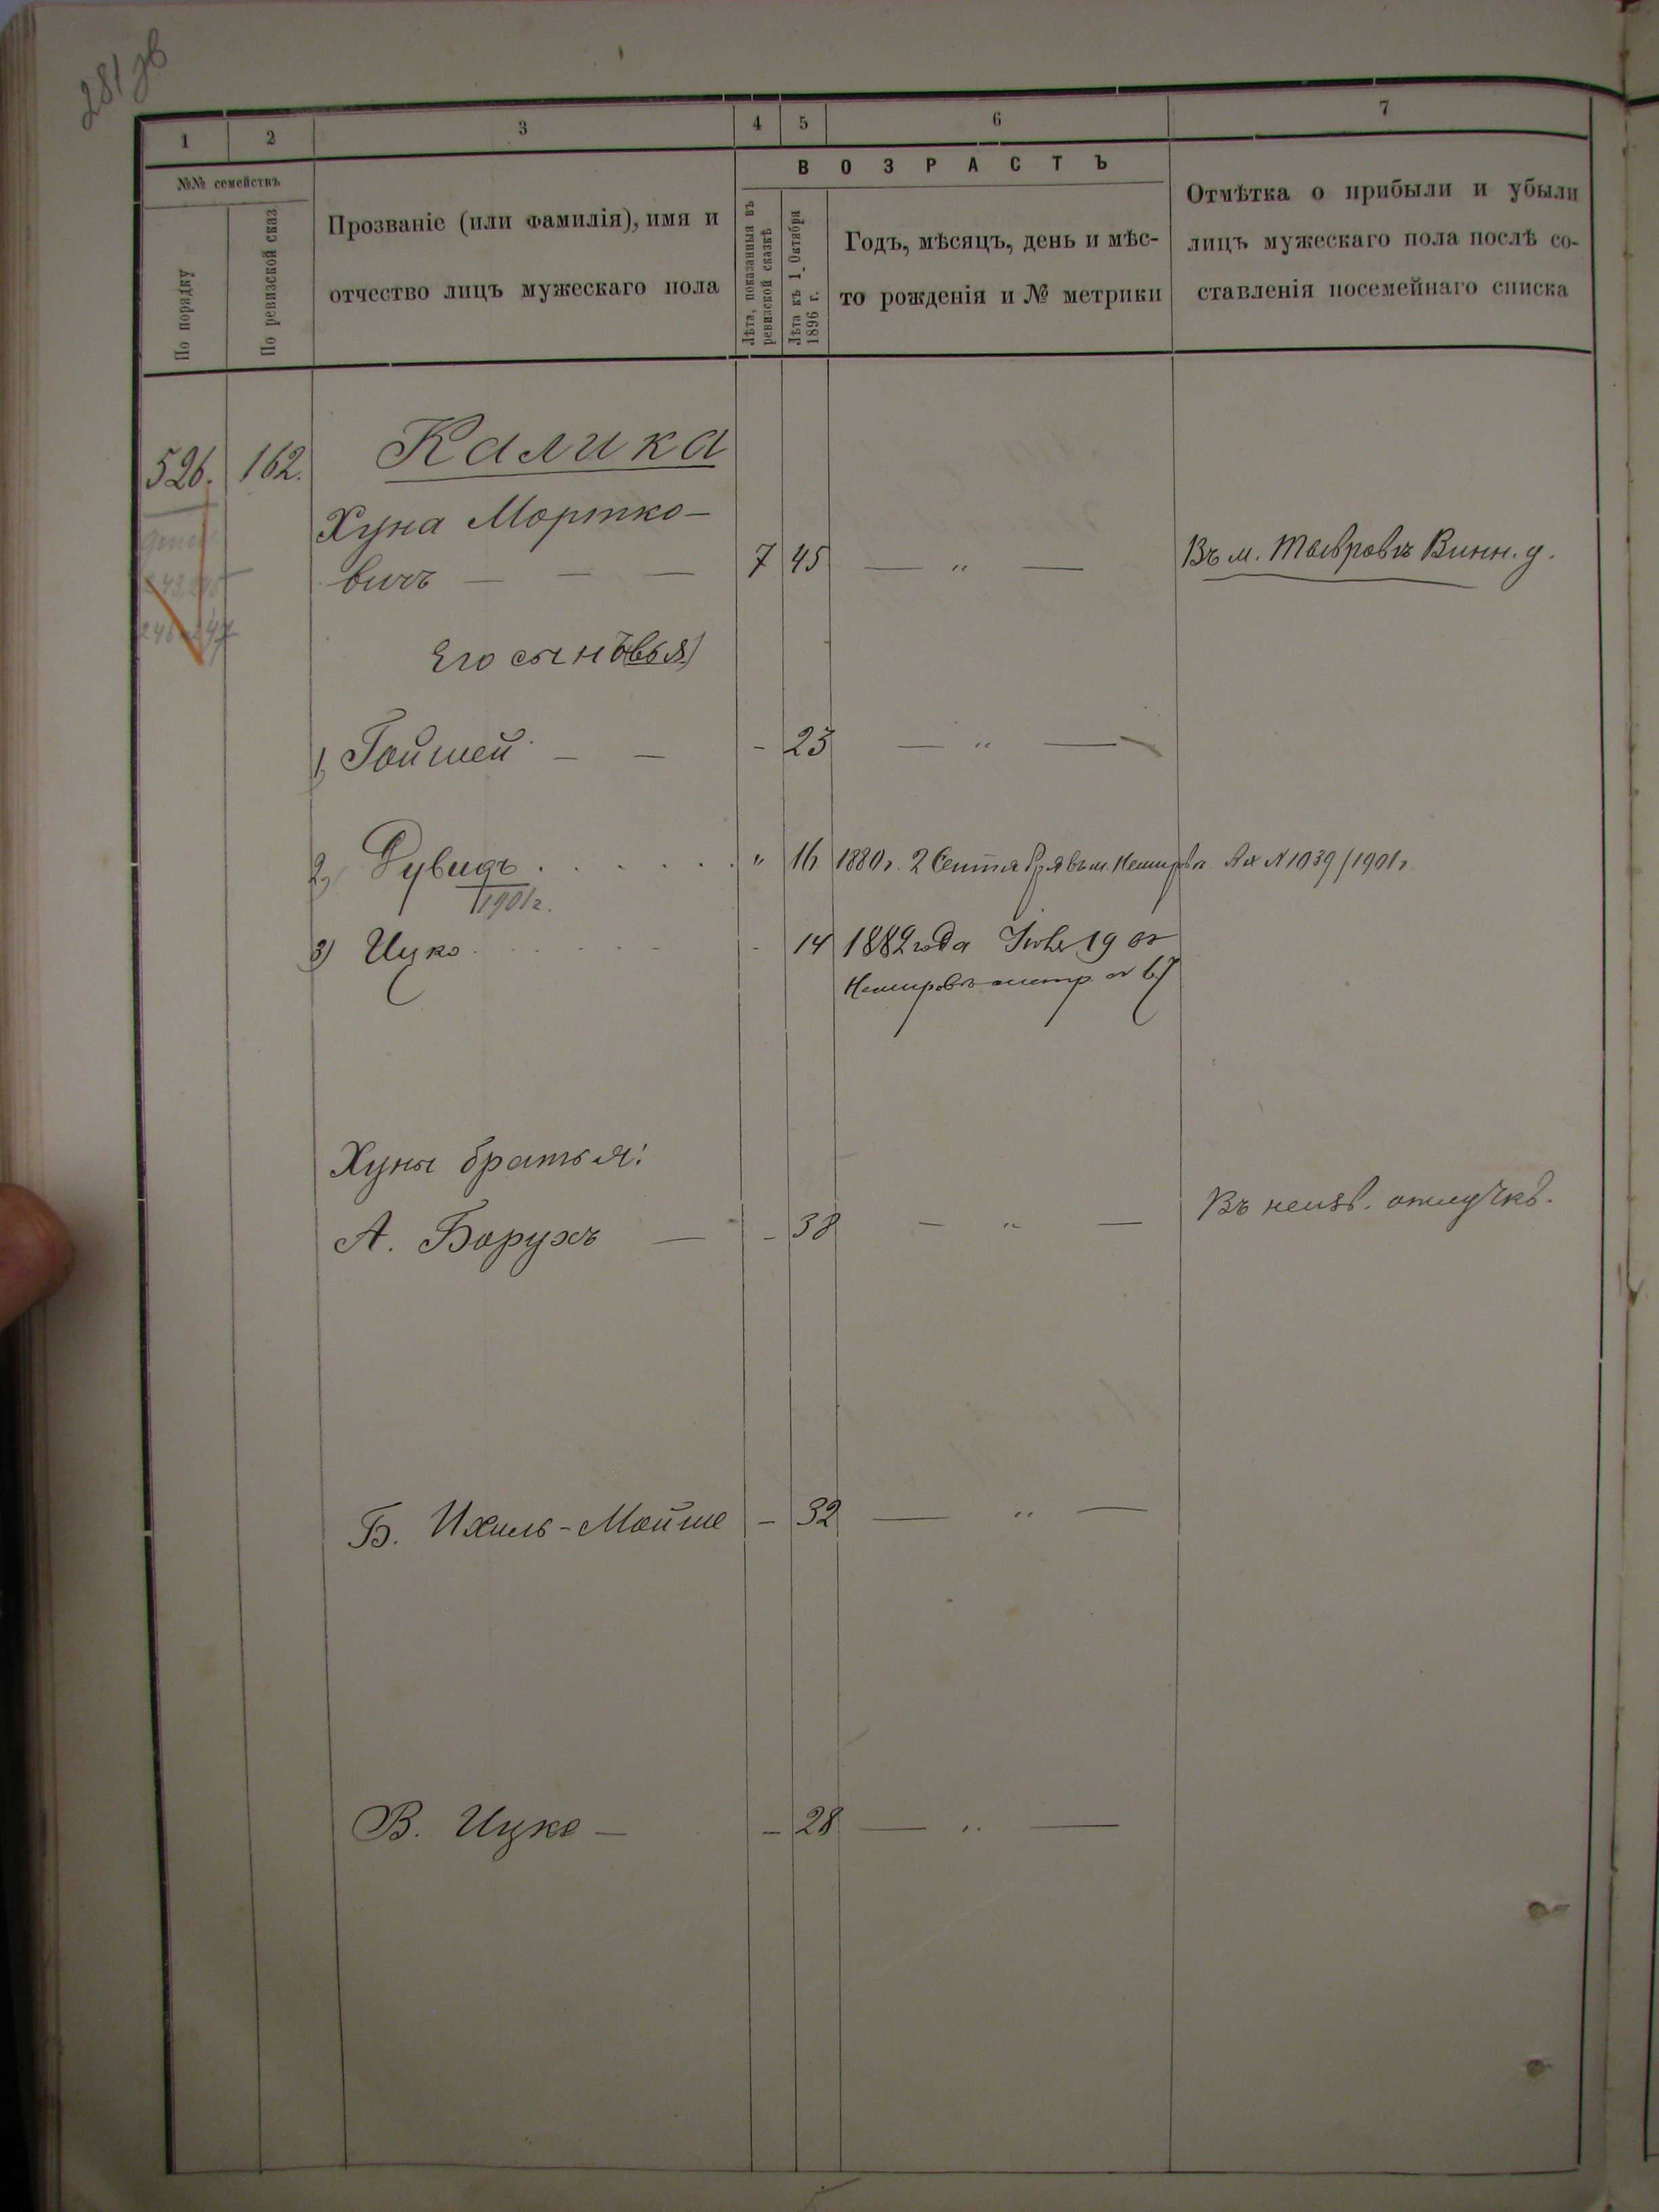 281 об
1 2 3 4 5 6 7
№№ семействъ
По порядку
По ревизской сказ.
Прозваніе (или фамилія), имя и
отчество лицъ мужескаго пола
ВОЗРАСТЪ
Лѣта, показанныя въ
ревизской сказкѣ
Лѣта къ 1 Октября
1896 г.
Годъ, мѣсяцъ, день и мѣс-
то рожденія и № метрики
Отмѣтка о прибыли и убыли
лицъ мужескаго пола послѣ со-
ставленія посемейнаго списка
526. 162. Калика
Хуна Мортко-
вичъ — — — 7 45 — „ — Въ м. Тывровѣ Винн. у.
Его сыновья
1, Гойшей — — - 23 — „ —
2, Дувидъ . . . . . . „ 16 1880 г. 2 Сентября въ м. Немировѣ № 1039/1901 г.
1901 г.
3) Ицко . . . . . - 14 1882 года 19
Немировъ метр. № 67
Хуны братья:
А. Борухъ — - 38 — „ — Въ неизв. отлучкѣ.
Б. Ихиль-Мойше - 32 — „ —
В. Ицко — - 28 — „ —